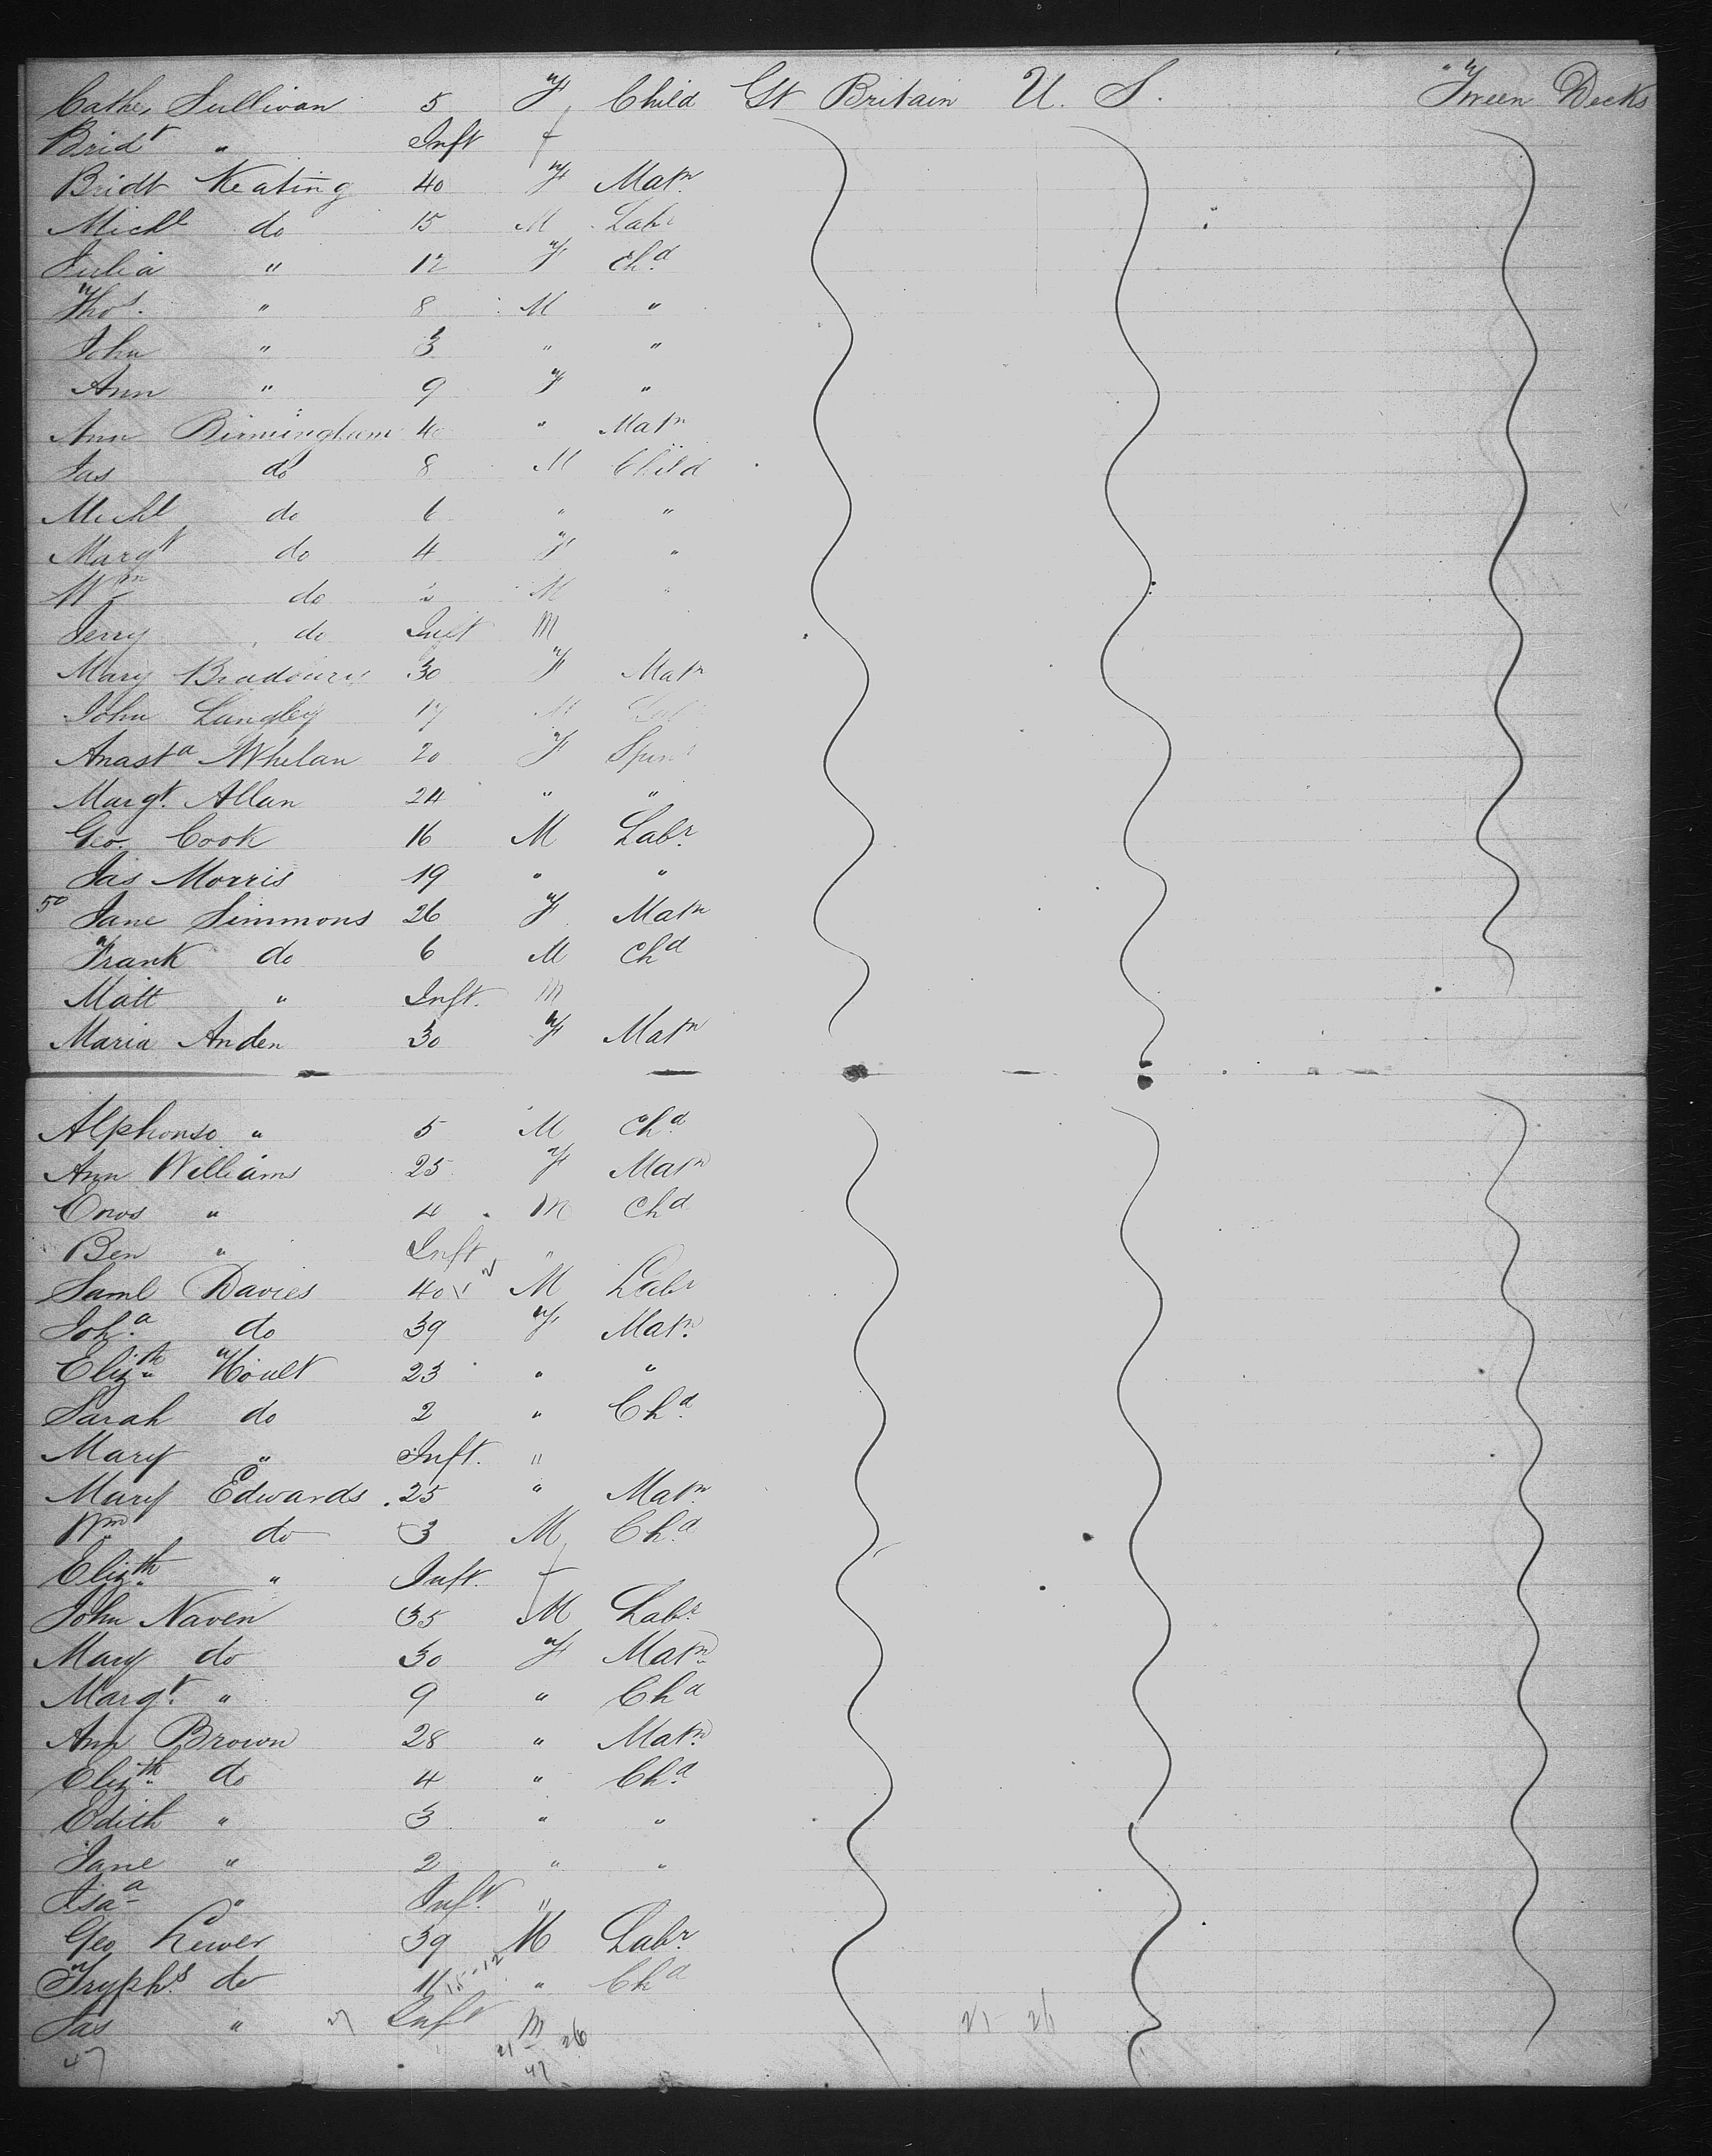 Cathe, Sullivan 5 F Child Gt Britain U. S. Tween Decks
Bridt " Inft f
Bridt Keating 40 F Matn
Michl do 15 M Labr
Julia " 12 F Chd
Thos. " 8 M "
John " 3 " "
Ann " 9 F "
Ann Birmingham 40 " Matn
Jas do 8 M Child
Michl do 6 " "
Margt do 4 F "
Wm do 2 M "
Jerry do Inft M
Mary 30 F Matn
John Langley 17 M Labr
Anasta Whelan 20 F Spinr
Margt. Allan 24 " "
Geo. Cook 16 M Labr.
Jas Morris 19 " "
50 Jane Simmons 26 F Matn
Frank do 6 M Chd
Matt " Inft. M
Maria Anden 30 F Matn
Alphonso " 5 M Chd
Ann Williams 25 F Matn
Enos " 4 M Chd
Ben " Inft "
Saml Davies 40 M Labr
Joh.a do 39 F Matn.
Elizth Hoult 23 " "
Sarah do 2 " Chd.
Mary " Inft. "
Mary Edwards 25 " Matn
Wm do 3 M Chd.
Elizth " Inft. f
John Naven 35 M Labr.
Mary do 30 F Matn
Margt. " 9 " Chd
Ann Brown 28 " Matn.
Elizth do 4 " Chd.
Edith " 3 " "
Jane " 2 " "
Isa a " Inft. "
Geo Lewer 39 M Labr.
Tryphs. do 11 15-12 " Chd
Jas " 27 Inft M 21 26
47 21 26 47